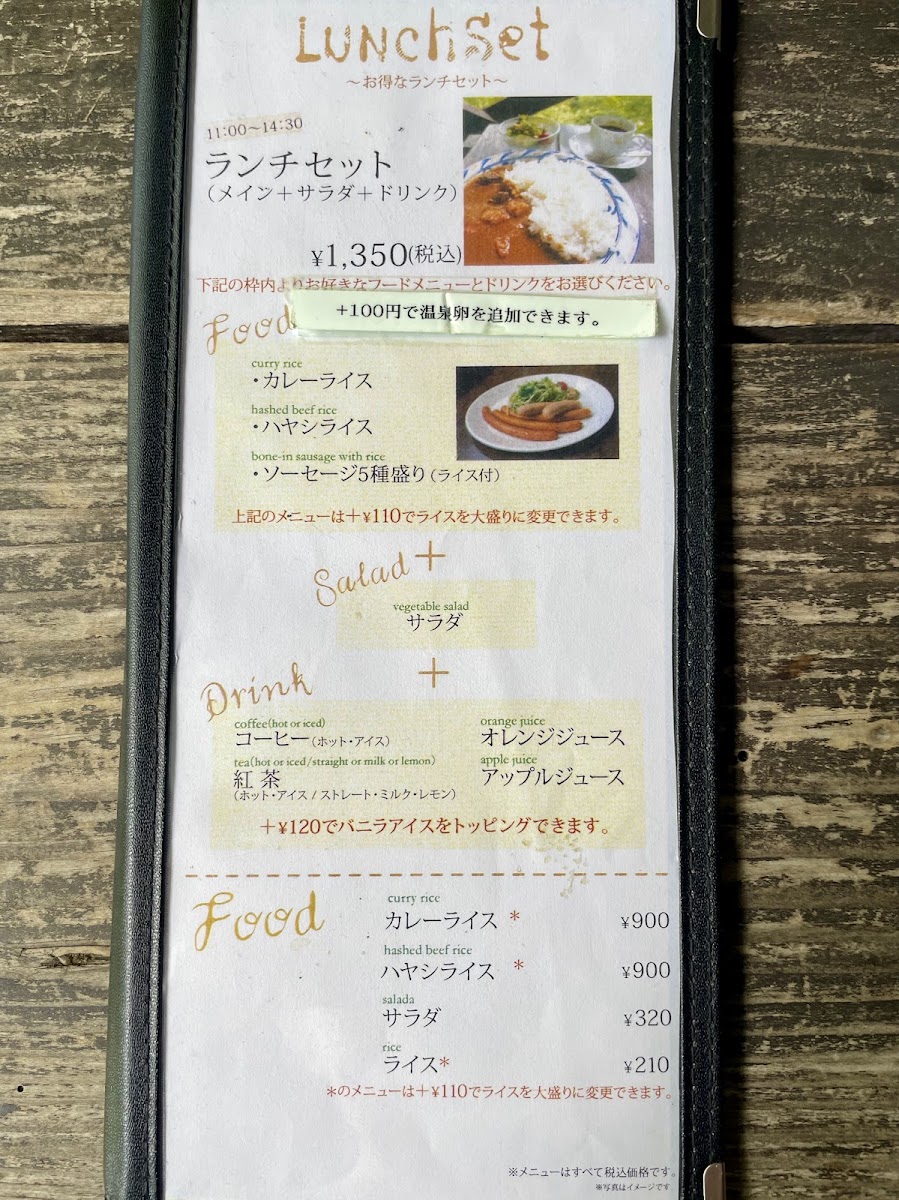 Lunch Set
～お得なランチセット～
11:00～14:30
ランチセット
（メイン＋サラダ＋ドリンク）
¥1,350(税込)
下記の枠内よりお好きなフードメニューとドリンクをお選びください。
+100円で温泉卵を追加できます。
Food
curry rice
・カレーライス
hashed beef rice
・ハヤシライス
bone-in sausage with rice
・ソーセージ5種盛り（ライス付）
上記のメニューは＋¥110でライスを大盛りに変更できます。
＋
Salad
vegetable salad
サラダ
＋
Drink
coffee(hot or iced)
コーヒー（ホット・アイス）
tea(hot or iced/straight or milk or lemon)
紅茶
（ホット・アイス / ストレート・ミルク・レモン）
orange juice
オレンジジュース
apple juice
アップルジュース
＋¥120でバニラアイスをトッピングできます。
Food
curry rice
カレーライス * ¥900
hashed beef rice
ハヤシライス * ¥900
salada
サラダ ¥320
rice
ライス* ¥210
*のメニューは＋¥110でライスを大盛りに変更できます。
※メニューはすべて税込価格です。
※写真はイメージです